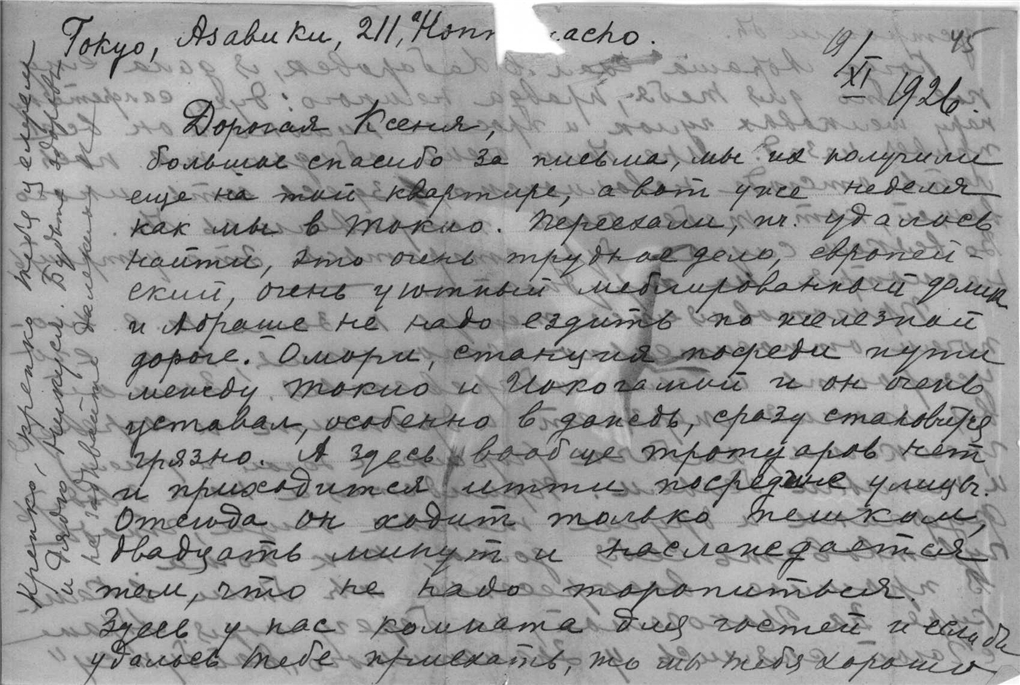 Токуо, Азавики, 211,
19/XI 1926.
45
Дорогая Ксеня,
большое спасибо за письма, мы их получили
еще на той квартире, а вот уже неделя
как мы в Токио. Переехали, пч. удалось
найти, это очень трудное дело, европей-
ский, очень уютный меблированный домик
и Абраше не надо ездить по железной
дороге. Омори, станция посреди пути
между Токио и Иокогамой и он очень
уставал, особенно в дождь, сразу становится
грязно. А здесь вообще тротуаров нет
и приходится итти посредине улицы.
Отсюда он ходит только пешком,
двадцать минут и наслаждается
тем, что не надо торопиться.
Здесь у нас комната для гостей и если бы
удалось тебе приехать, то мы тебя хорошо
Крепко, крепко тебя целуем
и дядю. Будьте здоровы
не задерживайте